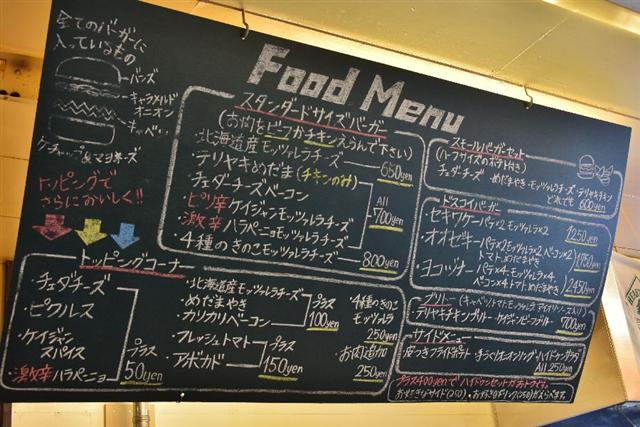 Food Menu
全てのバーガーに
入っているもの
バンズ
キャラメルド
オニオン
キャベツ
ケチャップ&マヨネーズ
トッピングで
さらにおいしく!!
スタンダードサイズバーガー
(お肉をビーフかチキンえらんで下さい)
・北海道産モッツァレラチーズ 650yen
・テリヤキめだま(チキンのみ)
・チェダーチーズベーコン
・ピリ辛ケイジャンモッツァレラチーズ
・激辛ハラペーニョモッツァレラチーズ
All 700yen
・4種のきのこモッツァレラチーズ 800yen
トッピングコーナー
・チェダチーズ
・ピクルス
・ケイジャン
スパイス
・激辛ハラペーニョ
プラス
50yen
・北海道産モッツァレラチーズ
・めだまやき
・カリカリベーコン
プラス
100yen
・フレッシュトマト
・アボカド
プラス
150yen
・4種のきのこ
モッツァレラ
250yen
・お肉追加
250yen
スモールバーガーセット
(ハーフサイズのポテト付き)
・チェダーチーズ ・めだまやき・モッツァレラチーズ・テリヤキチキン
600yen
ドスコイバーガー
・セキワケ パティ×2 モッツァレラ×2 1250yen
・オオゼキ パティ×2 モッツァレラ×2 ベーコン×2
トマト めだまやき 1750yen
・ヨコヅナ パティ×4 モッツァレラ×4
ベーコン×4 トマト めだまやき 2450yen
・テリヤキチキンブリトー・ケイジャンビーフブリトー 700yen
サイドメニュー
・皮つきフライドポテト ・きらくオニオンリング・ハイドゥンサラダ
All 250yen
プラス400yenでハイドゥンセットがおトクです。
お好きなサイド(250)、お好きなドリンク(250)がえらべます。